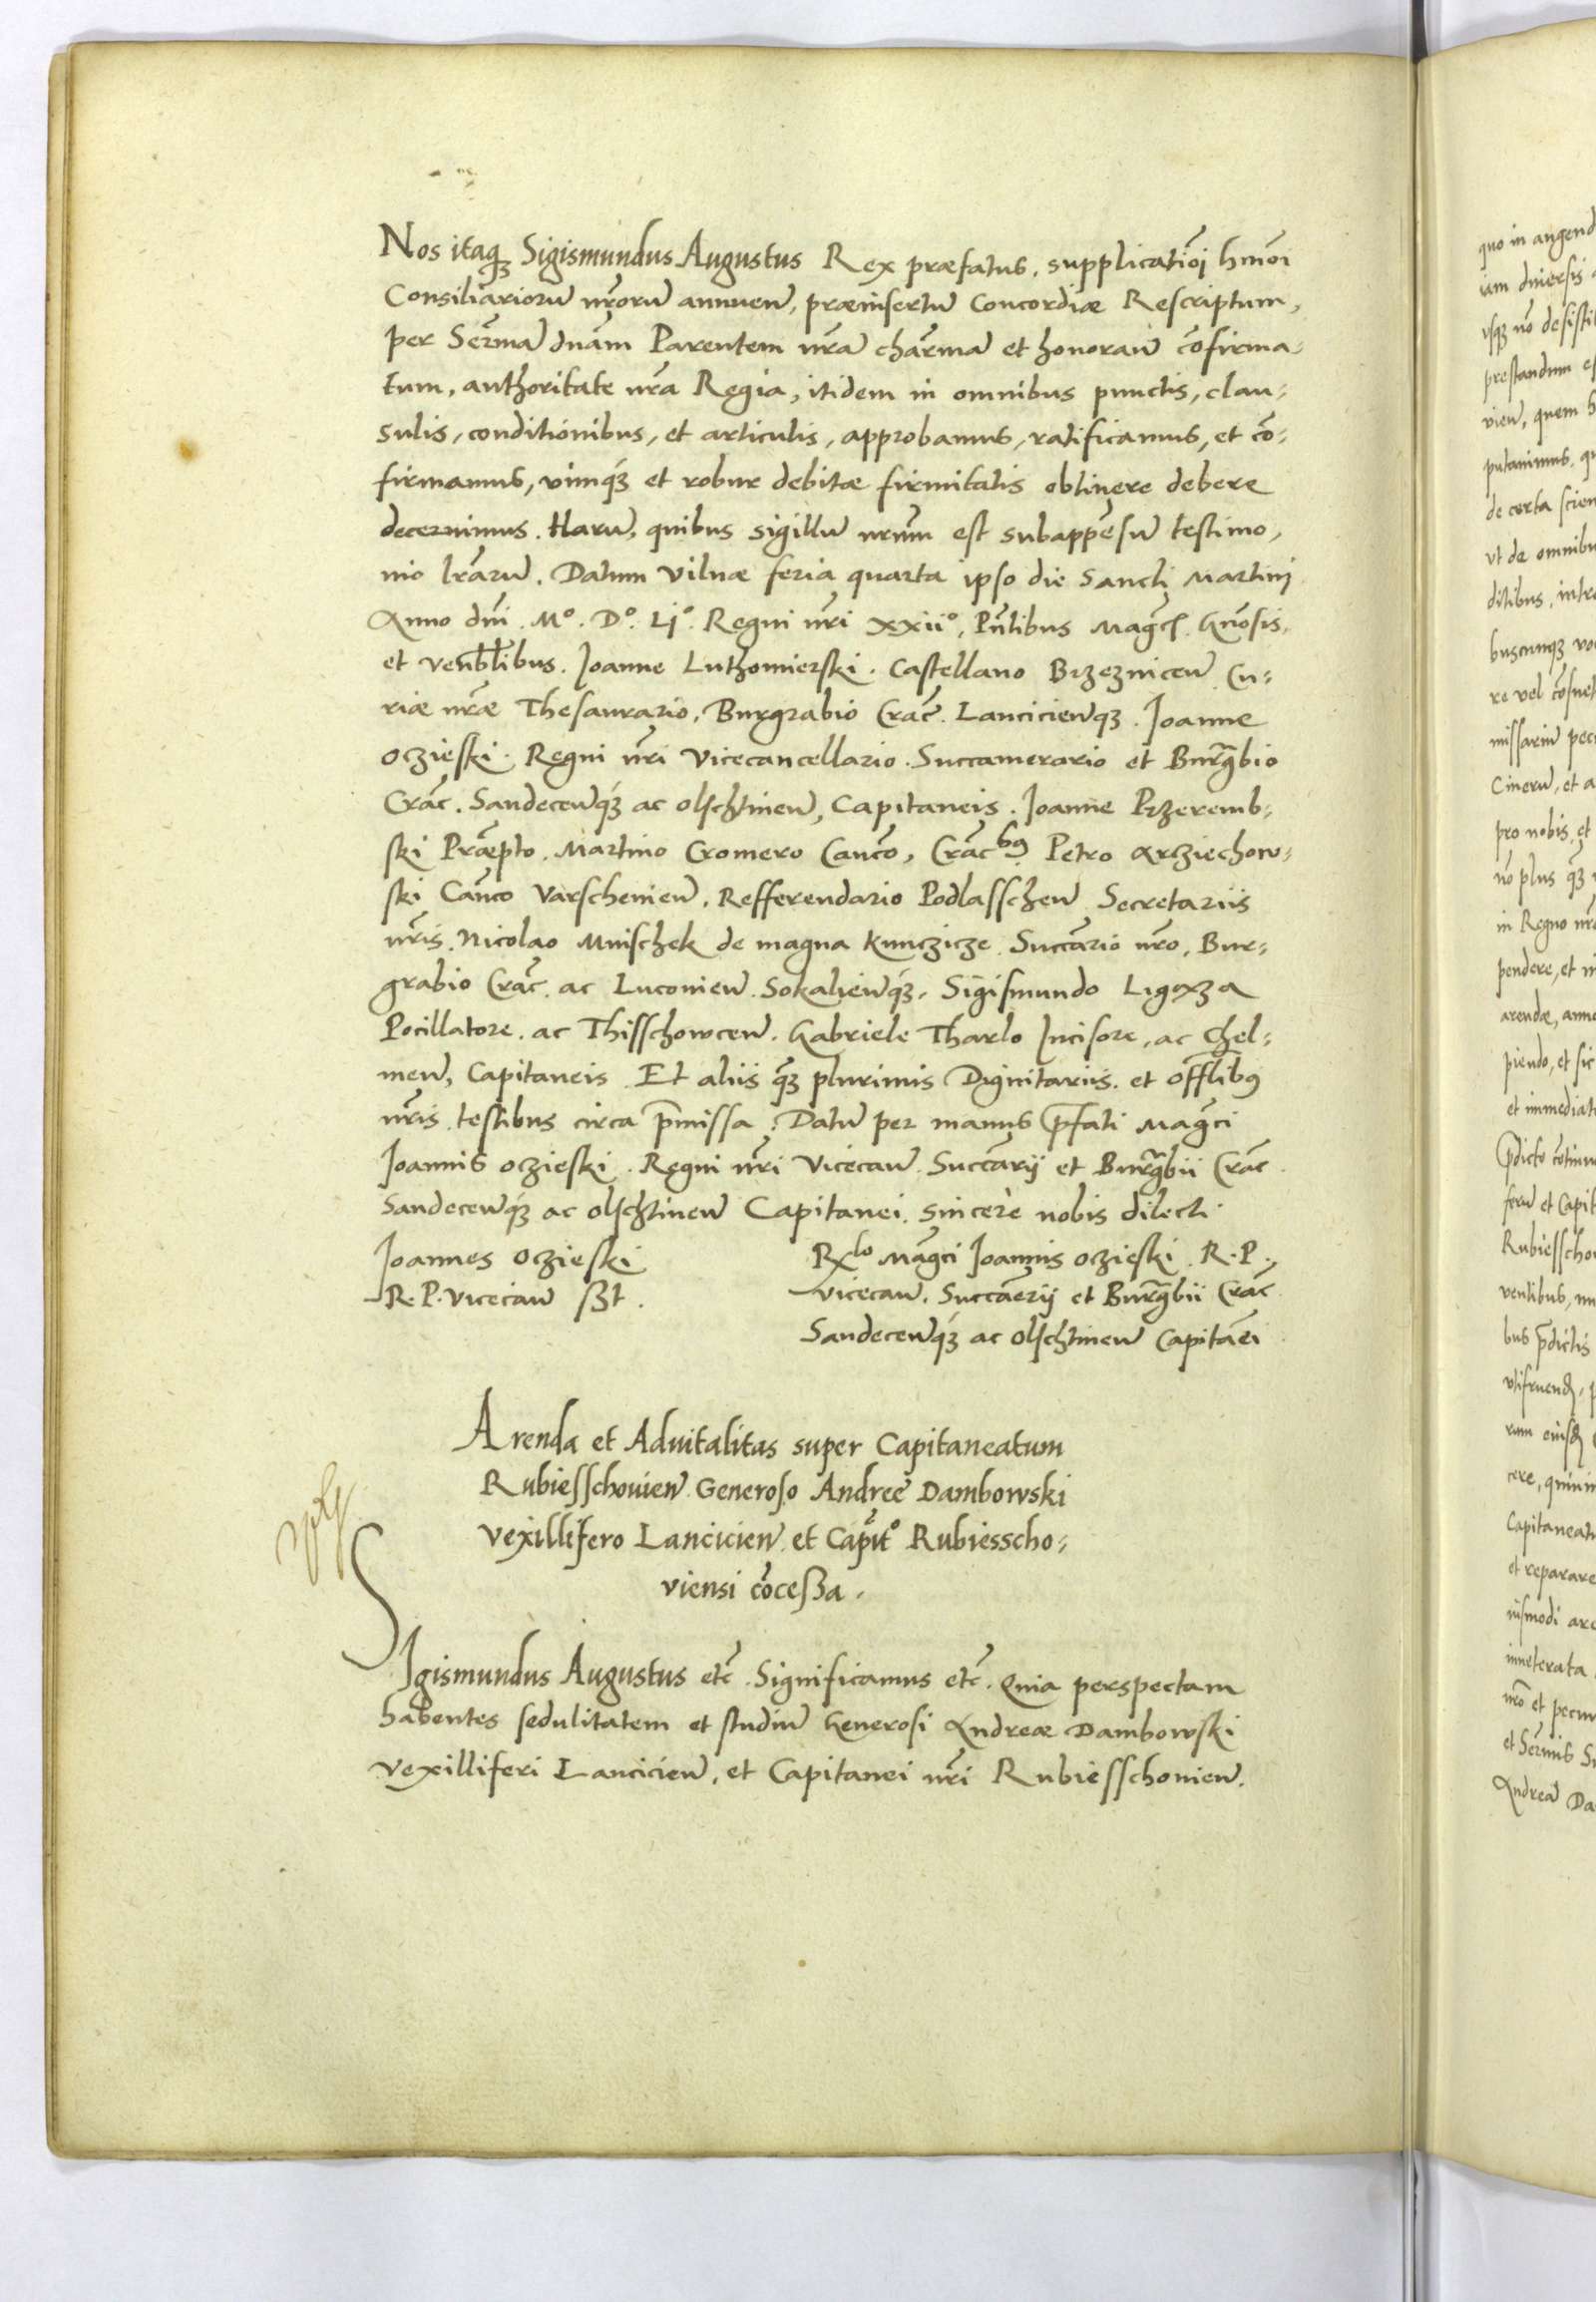 Nos itaq₃ Sigismundus Augustus Rex præfatus, supplicatiōi hmōi
Consiliarioru̅ nr̅oru̅ annuen̅, præinsertu̅ Concordiæ Rescriptum,
per Ser̅ma̅ dn̅am Parentem nr̅a̅ char̅ma̅ et honoran̅ cōfirma-
tum, authoritate nr̅a Regia, itidem in omnibus punctis, clau-
sulis, conditionibus, et articulis, approbamus, ratificamus, et cō-
firmamus, vimq₃ et robur debitæ firmitatis obtinere debere
decernimus. Haru̅, quibus sigillu̅ nr̅um est subappēsu̅ testimo,
nio lr̅aru̅. Datum Vilnæ feria quarta ipso die Sancti Martini
Anno dn̅i. Mº. Dº. Ljº. Regni nr̅i xxiiº, Pn̅tibus Mag̅cis. Gn̅osis,
et Ven̅bilibus. Joanne Luthomierski. Castellano Brzeznicen̅ Cu-
riæ nr̅æ Thesaurario, Burgrabio Crac̅. Lancicien̅q₃. Joanne
Oczieski. Regni nr̅i Vicecancellario. Succamerario et Burg̅rbio
Crac̅. Sandecen̅q₃ ac Olschtinen̅, Capitaneis. Joanne Przeremb-
ski Præpto̅. Martino Cromero Canco̅, Crac̅bꝰ Petro Arcziechow-
ski Can̅co Varschenien̅. Refferendario Podlasschen̅ Secretariis
nr̅is. Nicolao Mnischek de magna Kunczicze. Succario̅ nr̅o, Bur-
grabio Crac̅. ac Luconien̅. Sokalien̅q₃. Sigismundo Ligęza
Pocillatore. ac Thisschowcen̅. Gabriele Tharlo Incisore, ac Chel-
men̅, Capitaneis. Et aliis q₃ plurimis Dignitariis. et offl̅ibꝰ
nr̅is. testibus circa p̅missa. Datu̅ per manus p̅fati Mag̅ci
Joannis Oczieski. Regni nr̅i Vicecan̅. Succa̅rij et Burg̅rbii Crac̅.
Sandecen̅q₃ ac Olschtinen̅ Capitanei. sincerè nobis dilecti.
Joannes Oczieski
R. P. Vicecan̅ sßt.
Rˡᵒ Mag̅ci Joannis Oczieski. R. P.
Vicecan̅. Succa̅erij et Burg̅rbii Crac̅
Sandecen̅q₃ ac Olschtinen̅ Capita̅ei
Arenda et Advitalitas super Capitaneatum
Rubiesschouien̅ Generoso Andree Dambowski
Vexillifero Lancicien̅ et Capit̅º Rubiesscho-
viensi cōceßa.
SIgismundus Augustus etc̅. Significamus etc̅. Quia perspectam
habentes sedulitatem et studiu̅ Generosi Andreæ Dambowski
Vexilliferi Lancicien̅, et Capitanei nr̅i Rubiesschouien̅.
quo in augend
iam diuersis
vsq₃ nō desisti
prestandum e
vien̅, quem h
putauimus, qu
de certa scien
vt de omnibu
ditibus, intra
buscunq₃ vo
re vel cōsuet
missariu̅ pec
Cineru̅, et a
pro nobis, et
nō plus q₃
in Regno nr̅
pendere, et in
arendæ, anno
piendo, et sic
et immediat
p̅dicto cōtinu
feru̅ et Capit
Rubiesscho
ventibus, mu
bus p̅dictis
vtifruend,
rum eiusd
cere, quinim
Capitaneatu
et reparare
iusmodi are
inueterata
nr̅o et pecun
et Ser̅mis S
Andrea̅ Da